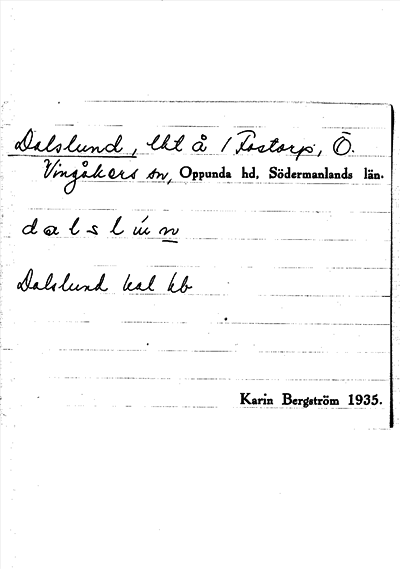 Dalslund, lht å 1 Fostorp, Ö.
Vingåkers sn, Oppunda hd, Södermanlands län.
dalslún
Dalslund kal hb
Karin Bergström 1935.